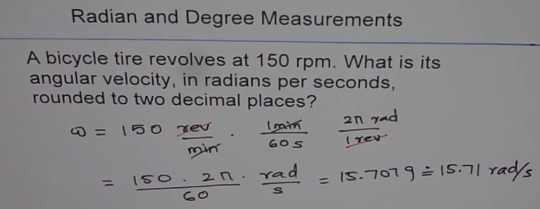 Radian and Degree Measurements
A bicycle tire revolves at 150 rpm. What is its
angular velocity, in radians per seconds,
rounded to two decimal places?
ω = 150 rev/min · 1min/60s 2π rad/1 rev
= 150 · 2π/60 · rad/s = 15.7079 ≐ 15.71 rad/s